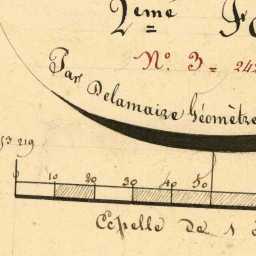 2emé
N.º 3 = 242
Par Delamaize Géomètre
219
0 10 20 30 40 50
Echelle de 1